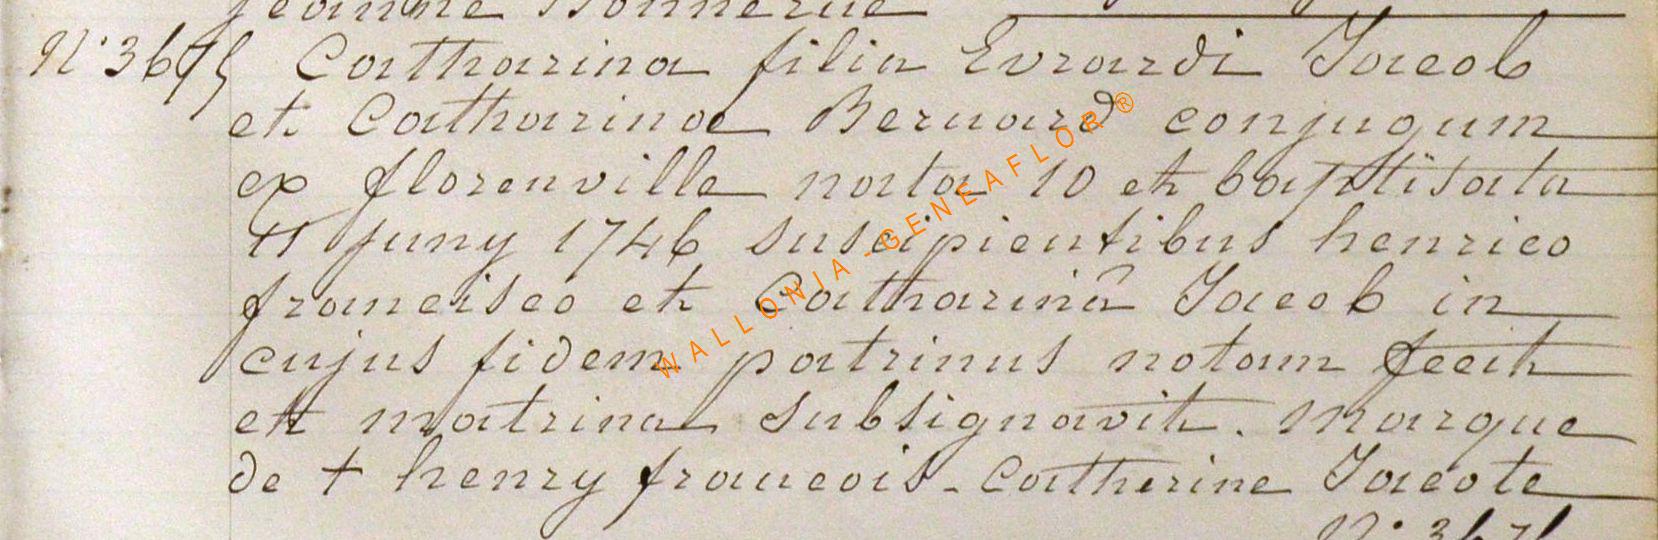 jeanne Bonnerue
N° 3675 Catharina filia Evrardi Jacob
et Catharinae Bernard conjugum
ex florenville nata 10 et baptisata
11 Juny 1746 suscipientibus henrico
francisco et Catharinâ Jacob in
cujus fidem patrinus notam fecit
et matrina subsignavit. Marque
de + henry francois - Catherine Jacote
N° 3676
WALLONIA-GENEAFLOR®